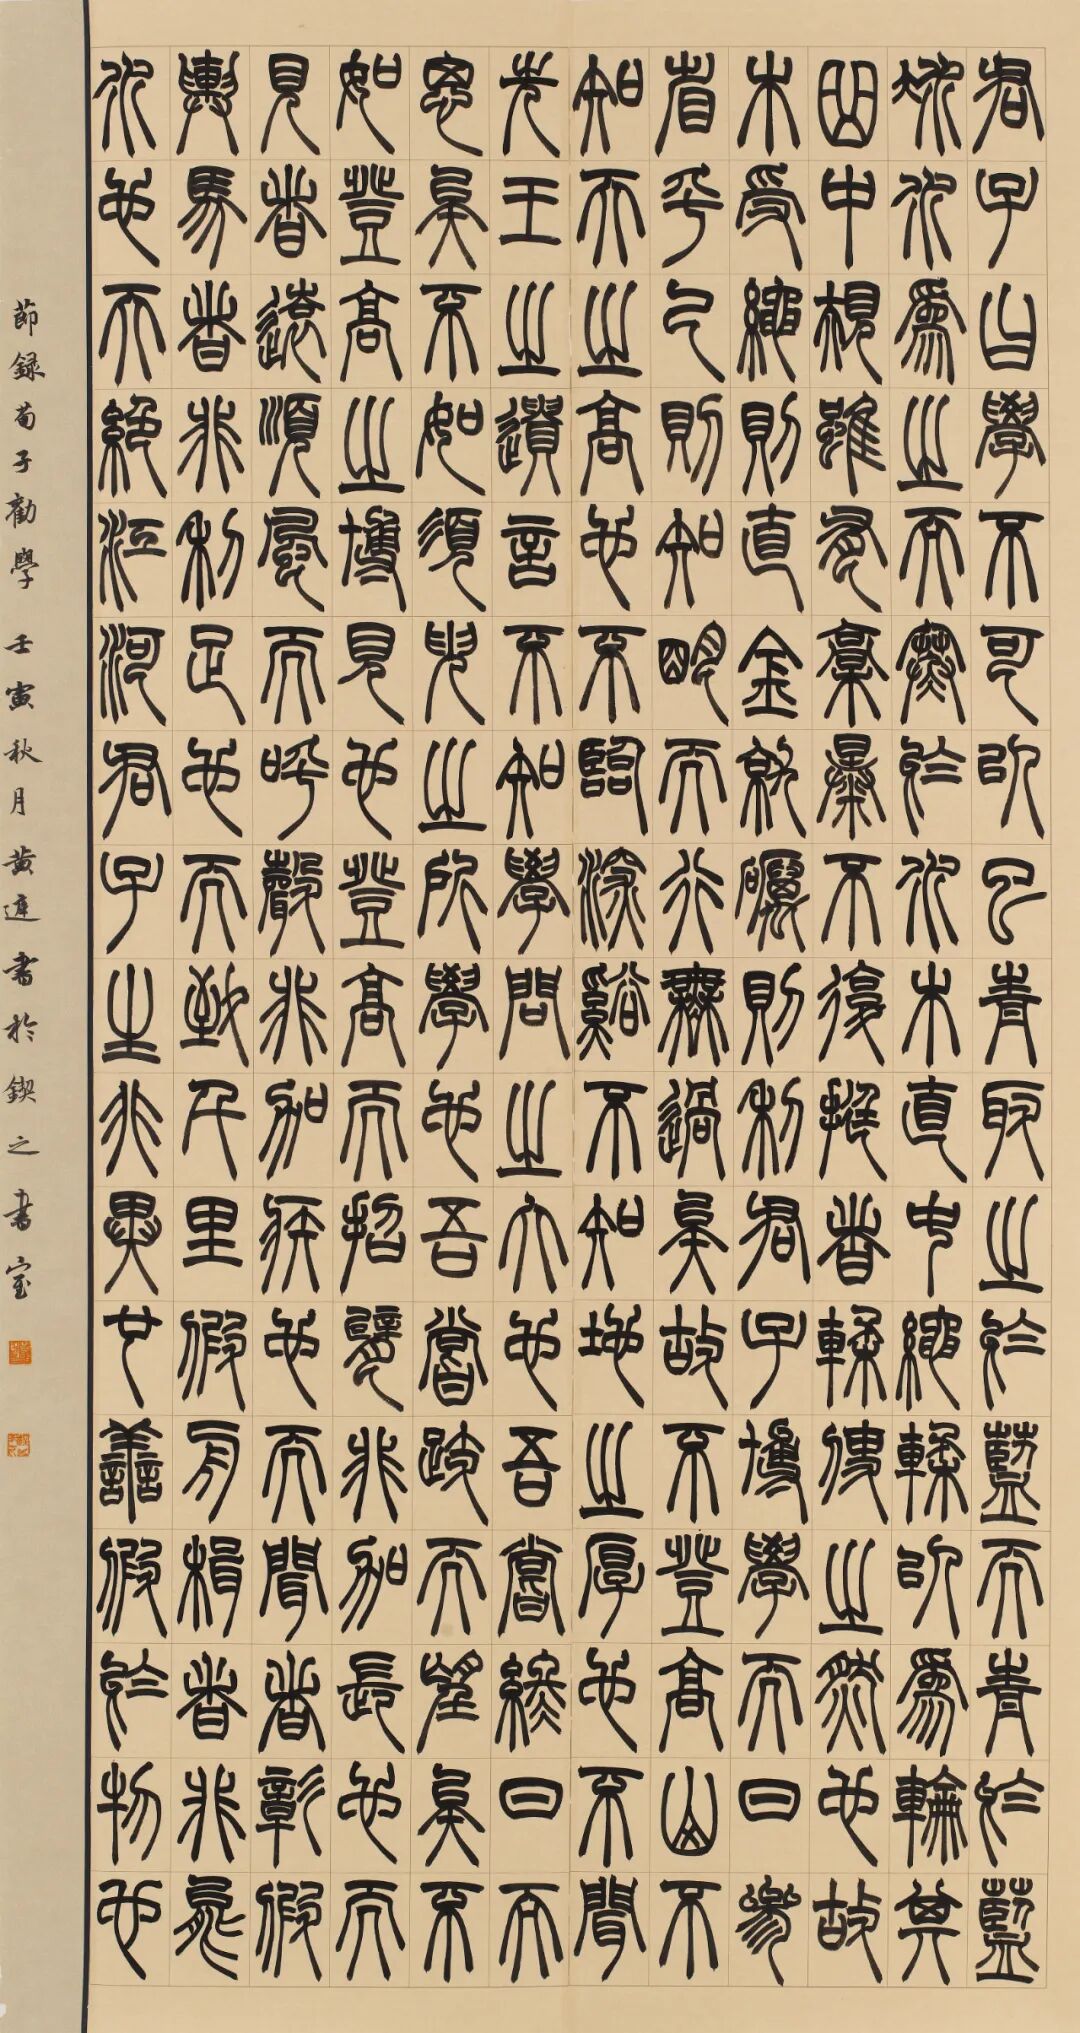 君子曰學不可以已青取之於藍而青於藍
冰水為之而寒於水木直中繩輮以為輪其
曲中規雖有槁暴不復挺者輮使之然也故
木受繩則直金就礪則利君子博學而日參
省乎己則知明而行無過矣故不登高山不
知天之高也不臨深谿不知地之厚也不聞
先王之遺言不知學問之大也吾嘗終日而
思矣不如須臾之所學也吾嘗跂而望矣不
如登高之博見也登高而招臂非加長也而
見者遠順風而呼聲非加疾也而聞者彰假
輿馬者非利足也而致千里假舟楫者非能
水也而絕江河君子生非異也善假於物也
節録荀子勸學 壬寅秋月黄書於鍥之書室